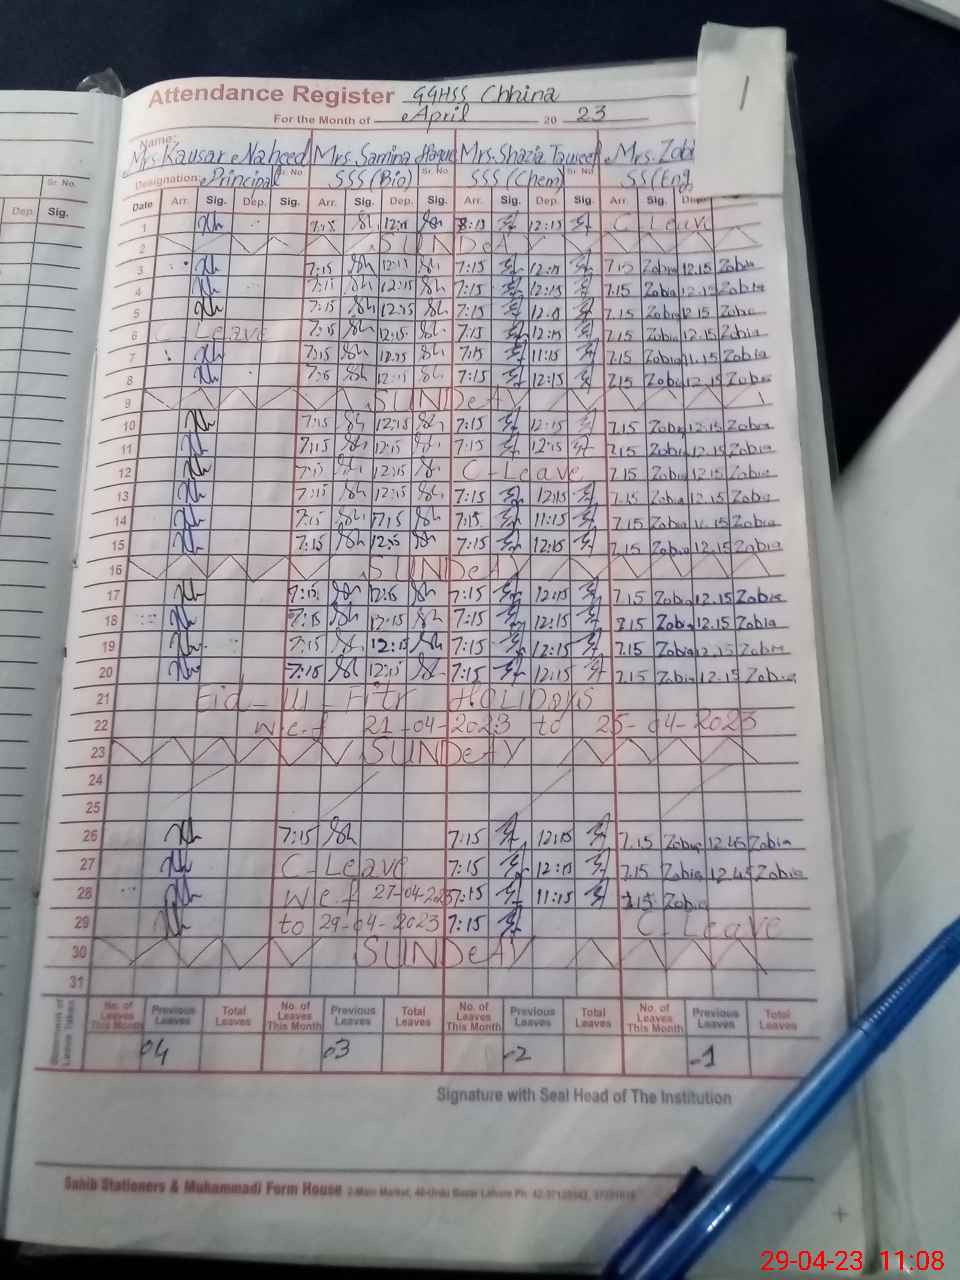 1
Attendance Register GGHSS Chhina
For the Month of April 20 23
Name: Mrs. Kausar Naheed Mrs. Samina Mrs. Shazia Mrs. Zobi
Sr. No. Sr. No. Sr. No. Sr. No.
Designation: Principal SSS (Bio) SSS (Chem) SS (Eng
Dep. Sig. Date Arr. Sig. Dep. Sig. Arr. Sig. Dep. Sig. Arr. Sig. Dep. Sig. Arr. Sig.
1 C Leave
2 SUNDeAY
3 7:15 7:15 12:15 7.15 Zobia 12.15 Zobia
4 7:15 12:15 7:15 12:15 7.15 Zobia 12.15 Zobia
5 7:15 12:15 7:15 7.15 Zobia 12.15 Zobia
6 C Leave 7:15 12:15 7:15 12:15 7.15 Zobia 12.15 Zobia
7 7:15 7:15 11:15 7.15 Zobia 11.15 Zobia
8 7:15 12:15 7.15 Zobia 12.15 Zobia
9 SUNDeAY
10 7:15 12:15 7:15 12:15 7.15 Zobia 12.15 Zobia
11 7:15 12:15 7:15 12:15 7.15 Zobia 12.15 Zobia
12 7:15 12:15 C-Leave 7.15 Zobia 12.15 Zobia
13 7:15 12:15 7:15 12:15 7.15 Zobia 12.15 Zobia
14 7:15 7:15 11:15 7.15 Zobia 11.15 Zobia
15 7:15 12:15 7:15 12:15 7.15 Zobia 12.15 Zobia
16 SUNDeAY
17 7:15 7:15 12:15 7.15 Zobia 12.15 Zobia
18 7:15 12:15 7:15 12:15 7.15 Zobia 12.15 Zobia
19 7:15 12:15 7:15 12:15 7.15 Zobia 12.15 Zobia
20 7:15 12:15 7:15 12:15 7.15 Zobia 12.15 Zobia
21 Eid-Ul-Fitr HOLIDays
22 w.e.f 21-04-2023 to 25-04-2023
23 SUNDeAY
24
25
26 7:15 7:15 12:15 7.15 Zobia 12.45 Zobia
27 C-Leave 7:15 12:15 7.15 Zobia 12.45 Zobia
28 w.e.f 27-04-2023 7:15 11:15 7.15 Zobia
29 to 29-04-2023 7:15 C-Leave
30 SUNDeAY
31
No. of Leaves This Month Previous Leaves Total Leaves No. of Leaves This Month Previous Leaves Total Leaves No. of Leaves This Month Previous Leaves Total Leaves No. of Leaves This Month Previous Leaves Total Leaves
04 03 2 1
Signature with Seal Head of The Institution
Sahib Stationers & Muhammadi Form House 2-Main Market, 40-Urdu Bazar Lahore Ph:
29-04-23 11:08